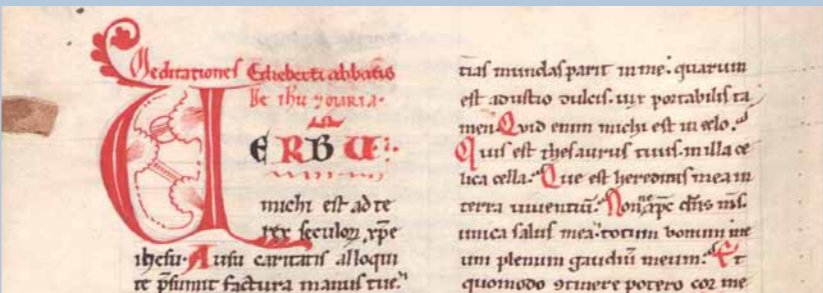 Meditationes Ekeberti abbatis
de ihu ⁊ maria.
VERBU
michi est ad te
rex seculoꝝ, xpe
ihesu. Ausu caritatis alloqui
te p̄sumit factura manus tue.
tias mundas parit in me. quarum
est adustio dulcis. uix portabilis ta
men. Quid enim michi est in celo.
Quis est thesaurus tuus. in illa ce
lica cella. Que est hereditas mea in
terra uiuentiū. Non ne xpc dn̄s m̄s.
unica salus mea. totum bonum me
um plenum gaudiū meum. Et
quomodo ꝯtinere potero cor me